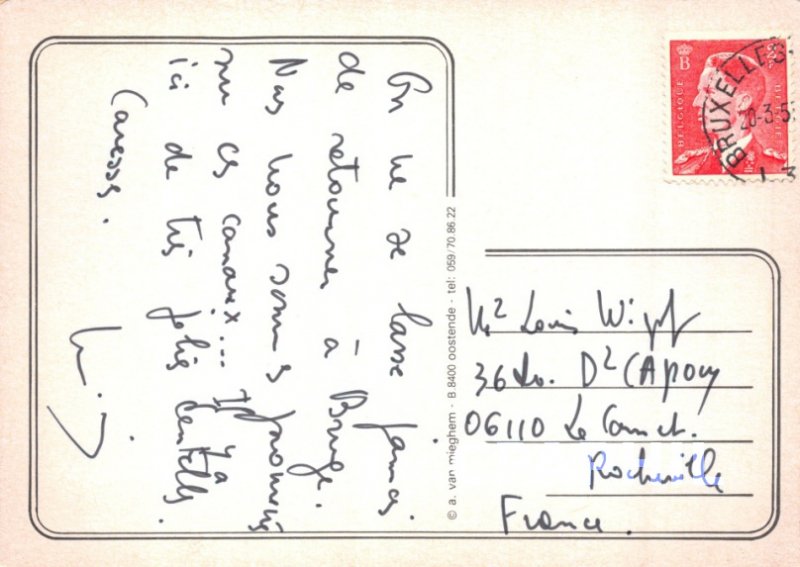 On ne se lasse jamais
de retourner à Bruge.
Nous nous sommes promenés
sur ces canaux... Il y a
ici de très jolies dentelles.
Caresses.
BELGIQUE
B
BELGIE
BRUXELLES
20-3-5
© a. van mieghem - B 8400 oostende - tel: 059/70 86 22
Mr Louis
36 Dr CApony
06110 Le Cannet.
Rocheville
France.